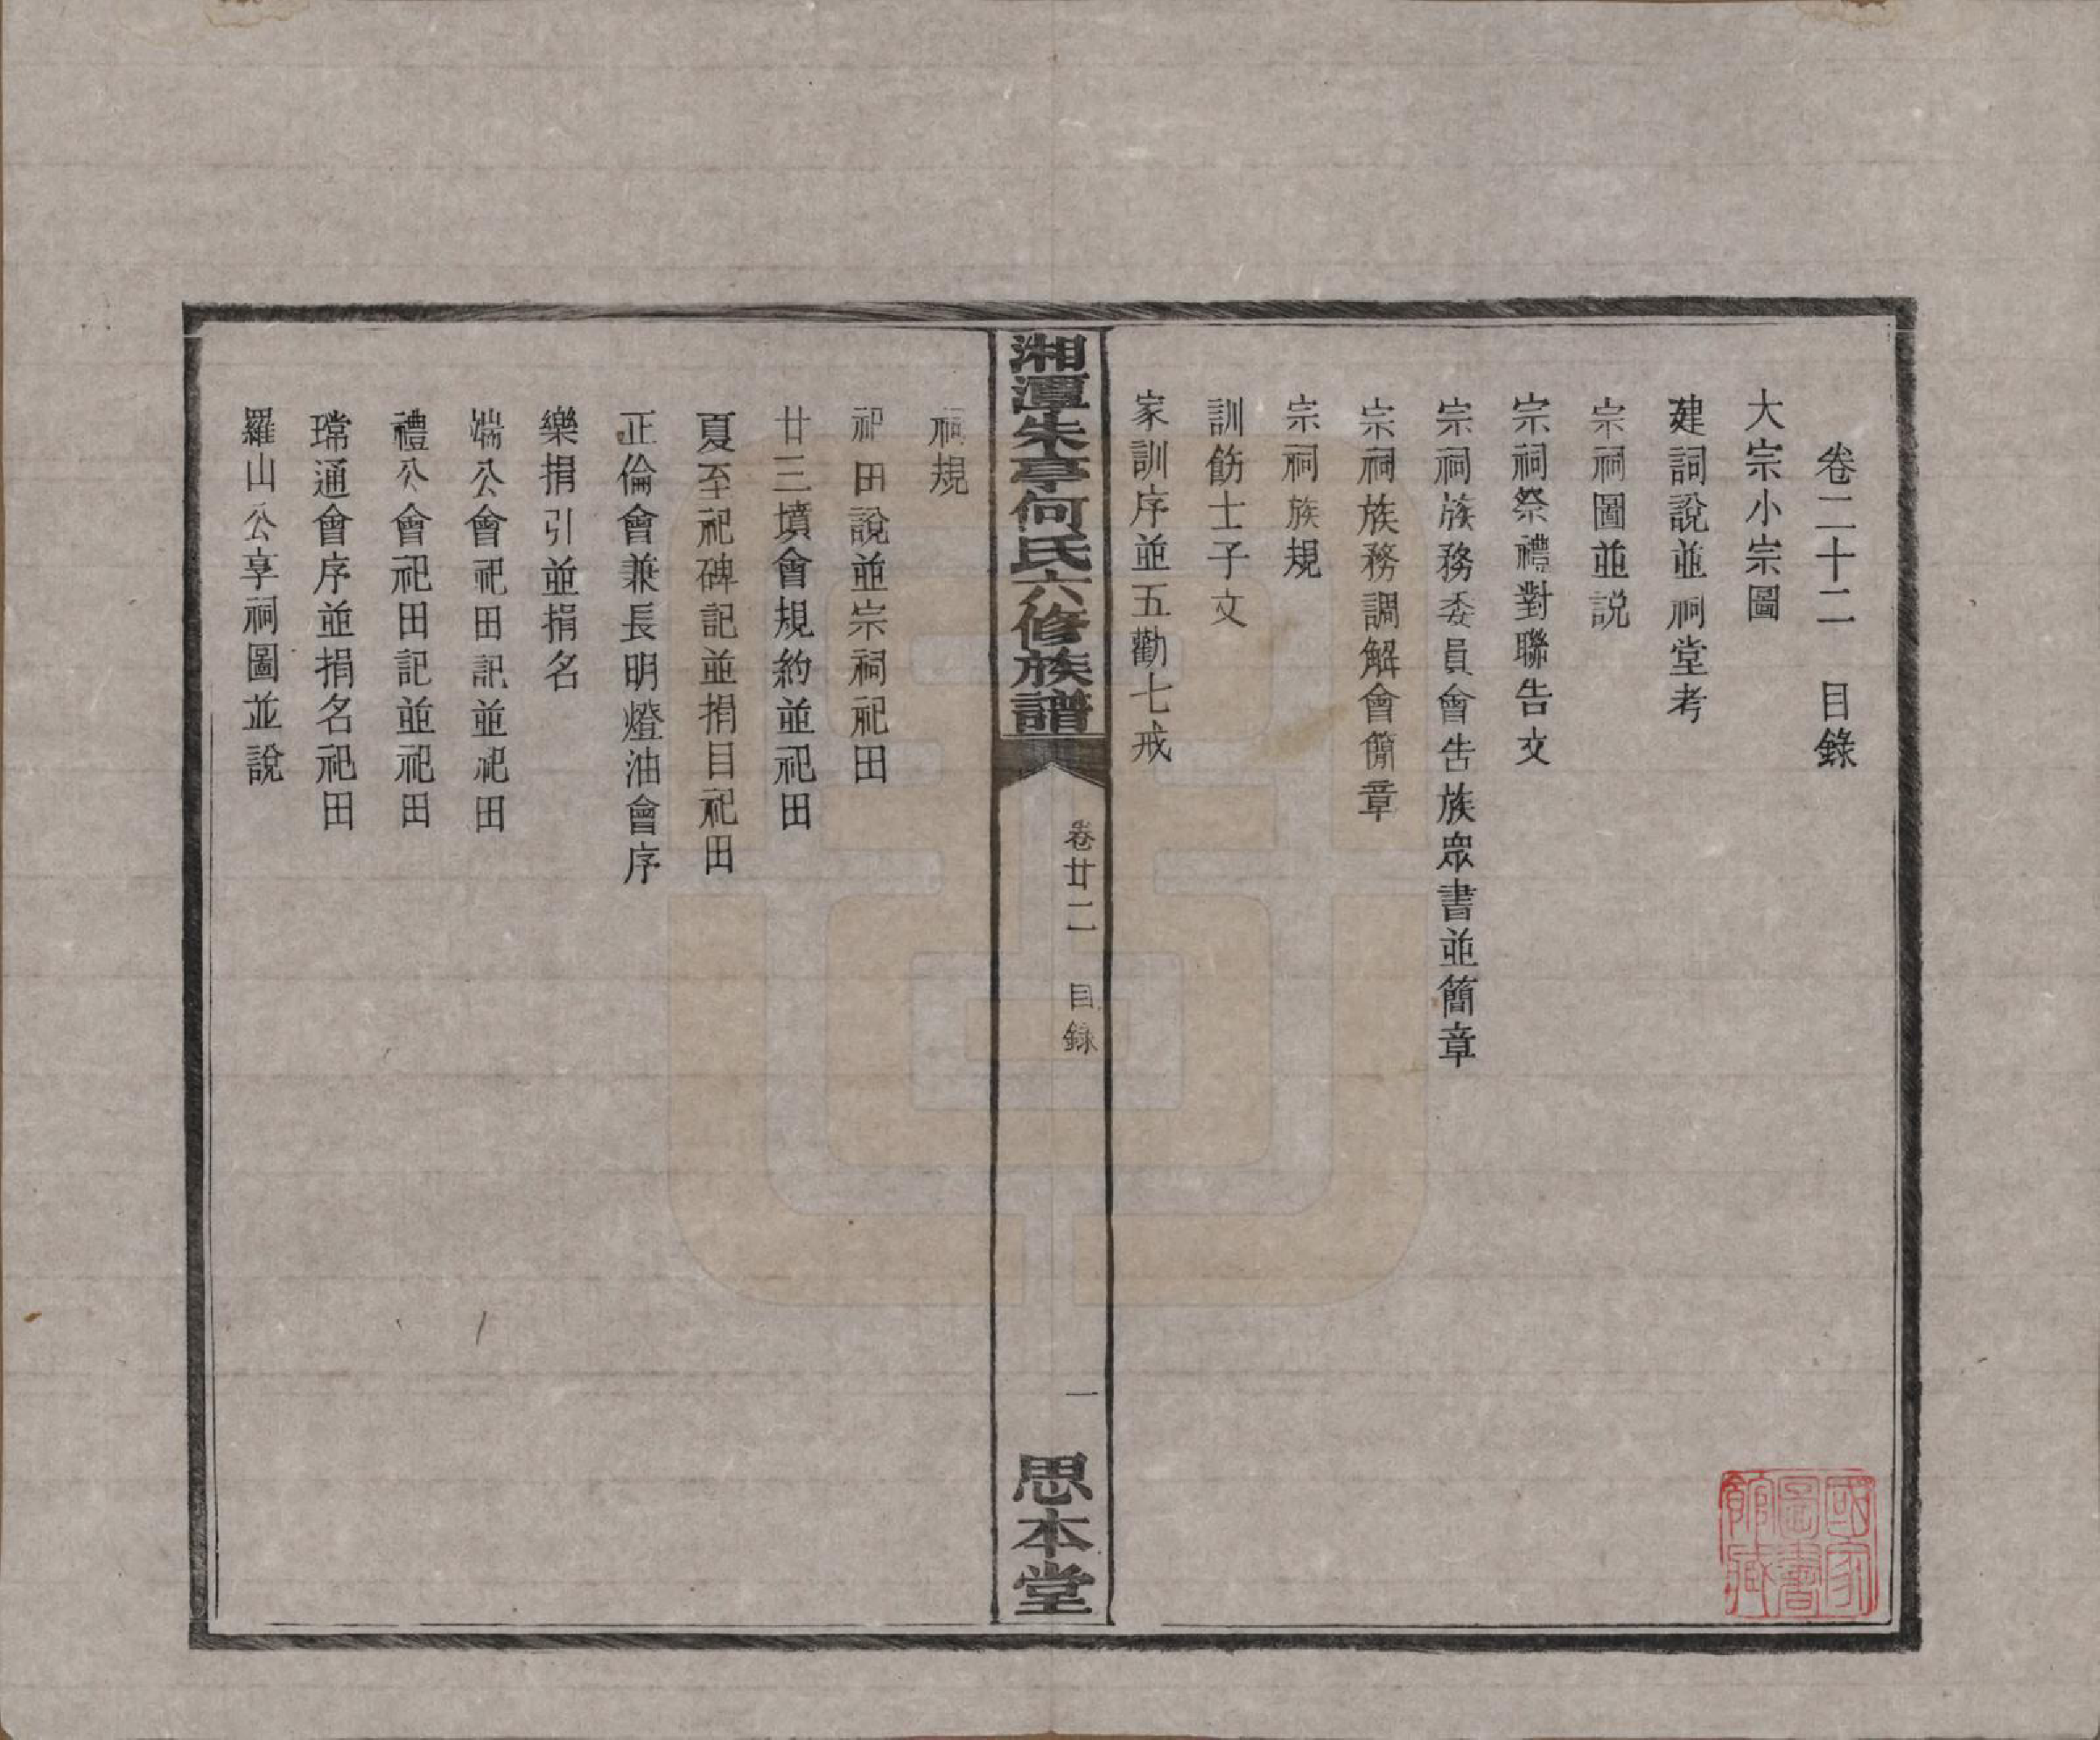 卷二十二　目錄
大宗小宗圖
建詞說並祠堂考
宗祠圖並説
宗祠祭禮對聯告文
宗祠族務委員會告族眾書並簡章
宗祠族務調解會簡章
宗祠族規
訓飭士子文
家訓序並五勸七戒
湘潭朱亭何氏六修族譜
卷廿二　目錄
一
思本堂
祠規
祀田說並宗祠祀田
廿三墳會規約並祀田
夏至祀碑記並捐目祀田
正倫會兼長明燈油會序
樂捐引並捐名
端公會祀田記並祀田
禮公會祀田記並祀田
璫通會序並捐名祀田
羅山公享祠圖並說
國家
圖書
館藏